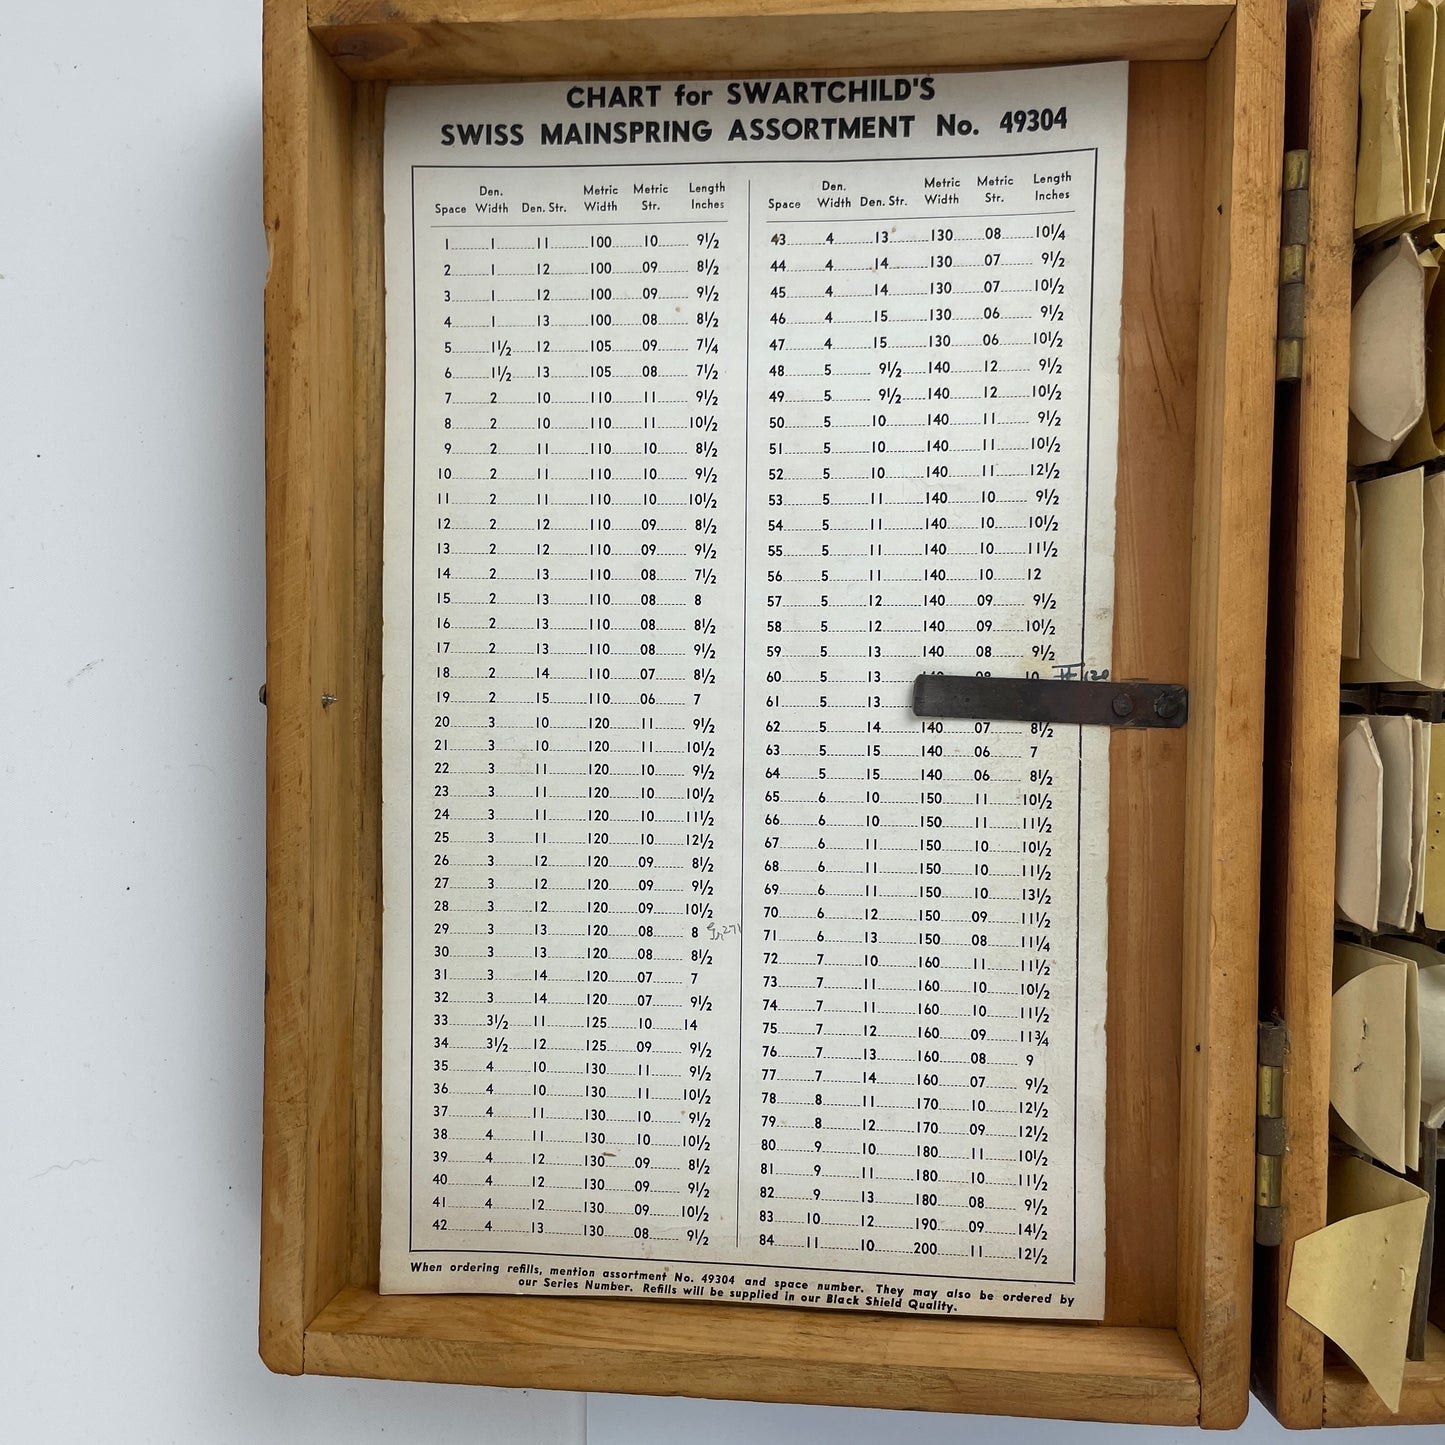 CHART for SWARTCHILD'S
SWISS MAINSPRING ASSORTMENT No. 49304
Space Den. Width Den. Str. Metric Width Metric Str. Length Inches
1 1 11 100 10 9½
2 1 12 100 09 8½
3 1 12 100 09 9½
4 1 13 100 08 8½
5 1½ 12 105 09 7¼
6 1½ 13 105 08 7½
7 2 10 110 11 9½
8 2 10 110 11 10½
9 2 11 110 10 8½
10 2 11 110 10 9½
11 2 11 110 10 10½
12 2 12 110 09 8½
13 2 12 110 09 9½
14 2 13 110 08 7½
15 2 13 110 08 8
16 2 13 110 08 8½
17 2 13 110 08 9½
18 2 14 110 07 8½
19 2 15 110 06 7
20 3 10 120 11 9½
21 3 10 120 11 10½
22 3 11 120 10 9½
23 3 11 120 10 10½
24 3 11 120 10 11½
25 3 11 120 10 12½
26 3 12 120 09 8½
27 3 12 120 09 9½
28 3 12 120 09 10½
29 3 13 120 08 8
30 3 13 120 08 8½
31 3 14 120 07 7
32 3 14 120 07 9½
33 3½ 11 125 10 14
34 3½ 12 125 09 9½
35 4 10 130 11 9½
36 4 10 130 11 10½
37 4 11 130 10 9½
38 4 11 130 10 10½
39 4 12 130 09 8½
40 4 12 130 09 9½
41 4 12 130 09 10½
42 4 13 130 08 9½
Space Den. Width Den. Str. Metric Width Metric Str. Length Inches
43 4 13 130 08 10¼
44 4 14 130 07 9½
45 4 14 130 07 10½
46 4 15 130 06 9½
47 4 15 130 06 10½
48 5 9½ 140 12 9½
49 5 9½ 140 12 10½
50 5 10 140 11 9½
51 5 10 140 11 10½
52 5 10 140 11 12½
53 5 11 140 10 9½
54 5 11 140 10 10½
55 5 11 140 10 11½
56 5 11 140 10 12
57 5 12 140 09 9½
58 5 12 140 09 10½
59 5 13 140 08 9½
60 5 13 140 08 10
61 5 13
62 5 14 140 07 8½
63 5 15 140 06 7
64 5 15 140 06 8½
65 6 10 150 11 10½
66 6 10 150 11 11½
67 6 11 150 10 10½
68 6 11 150 10 11½
69 6 11 150 10 13½
70 6 12 150 09 11½
71 6 13 150 08 11¼
72 7 10 160 11 11½
73 7 11 160 10 10½
74 7 11 160 10 11½
75 7 12 160 09 11¾
76 7 13 160 08 9
77 7 14 160 07 9½
78 8 11 170 10 12½
79 8 12 170 09 12½
80 9 10 180 11 10½
81 9 11 180 10 11½
82 9 13 180 08 9½
83 10 12 190 09 14½
84 11 10 200 11 12½
When ordering refills, mention assortment No. 49304 and space number. They may also be ordered by
our Series Number. Refills will be supplied in our Black Shield Quality.